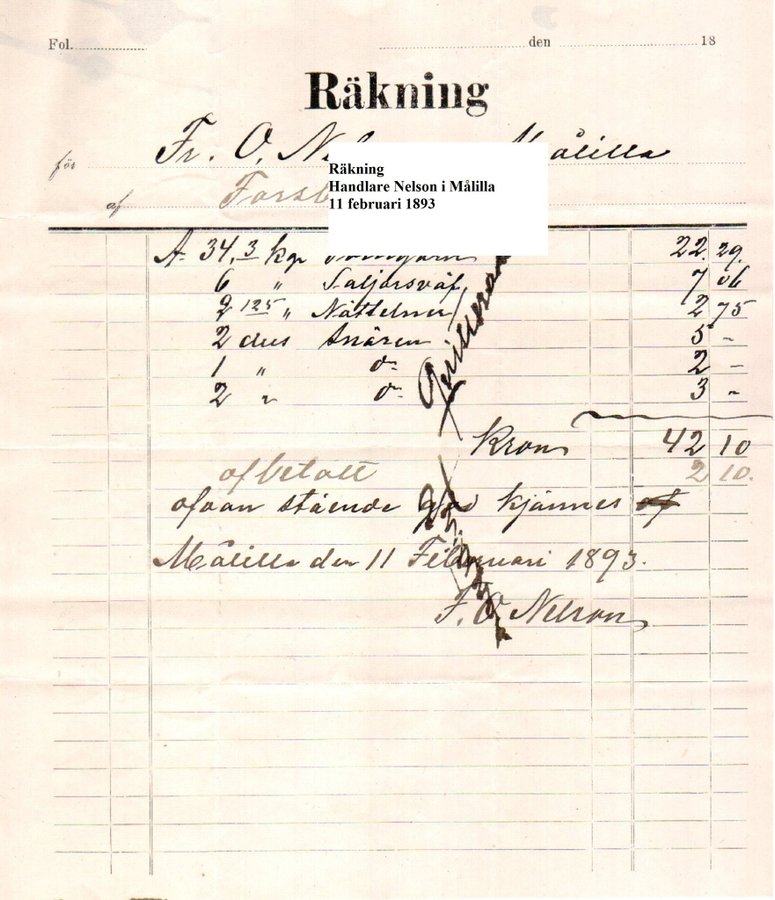 Fol. den 18
Räkning
för Fr. O. Målilla
Räkning
Handlare Nelson i Målilla
11 februari 1893
af
34,3 kgr 22. 29.
6 " 7 06
2 125 " 2 75
2 dus Snären 5 -
1 " do 2 -
2 " do 3 -
Qvitteras
Kronor 42 10
afbetalt 2 10.
ofvan stående god kjännes af
Målilla den 11 Februari 1893.
F. O Nelson